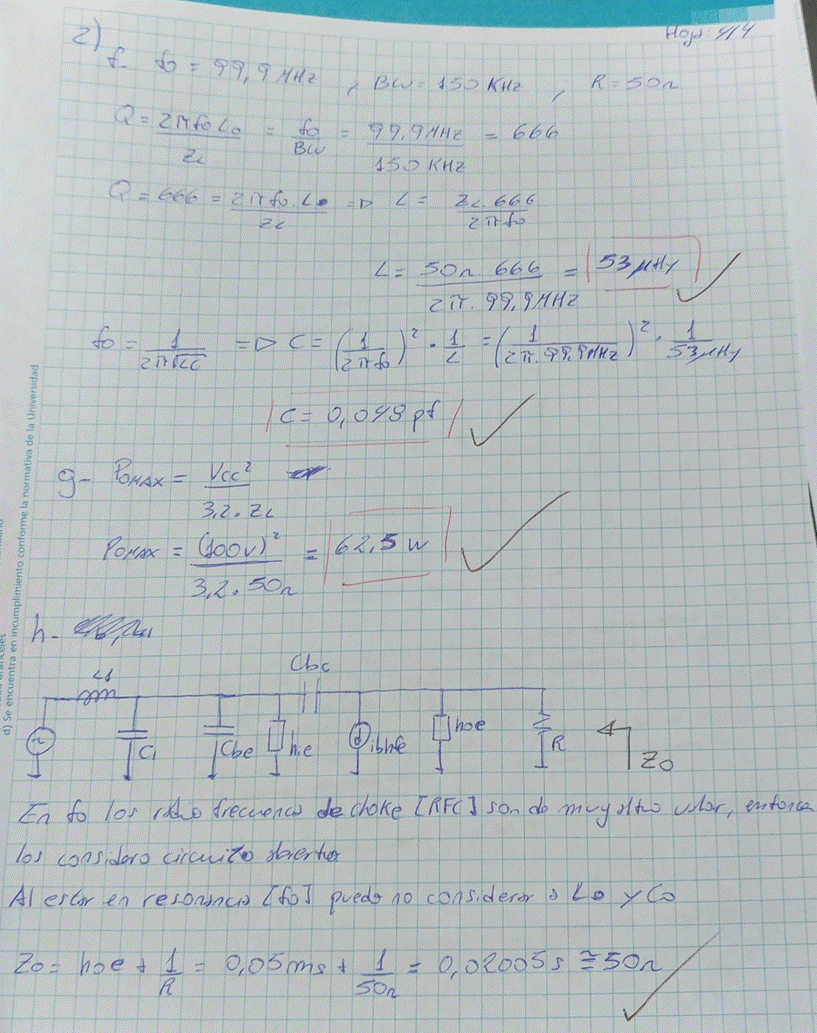 Hoja 4/4
2)
f- fo = 99,9 MHz ; BW = 150 KHz ; R = 50Ω
Q = 2πfoLo / ZL = fo / BW = 99,9MHz / 150KHz = 666
Q = 666 = 2πfo.Lo / ZL => L = ZL.666 / 2πfo
L = 50Ω.666 / 2π.99,9MHz = 53μHy
fo = 1 / 2π√LC => C = (1 / 2πfo)² . 1/L = (1 / 2π.99,9MHz)² . 1 / 53μHy
C = 0,048 pf
g- POMAX = Vcc² / 3,2.ZL
POMAX = (100V)² / 3,2.50Ω = 62,5 W
h-
L1 Cbc
C1 Cbe hie ibhfe hoe R Zo
En fo los radio frecuencia de choke [RFC] son de muy alto valor, entonces
los considero circuito abierto
Al estar en resonancia [fo] puedo no considerar a Lo y Co
Zo = hoe + 1/R = 0,05ms + 1/50Ω = 0,02005s ≅ 50Ω
d) Se encuentra en incumplimiento conforme la normativa de la Universidad